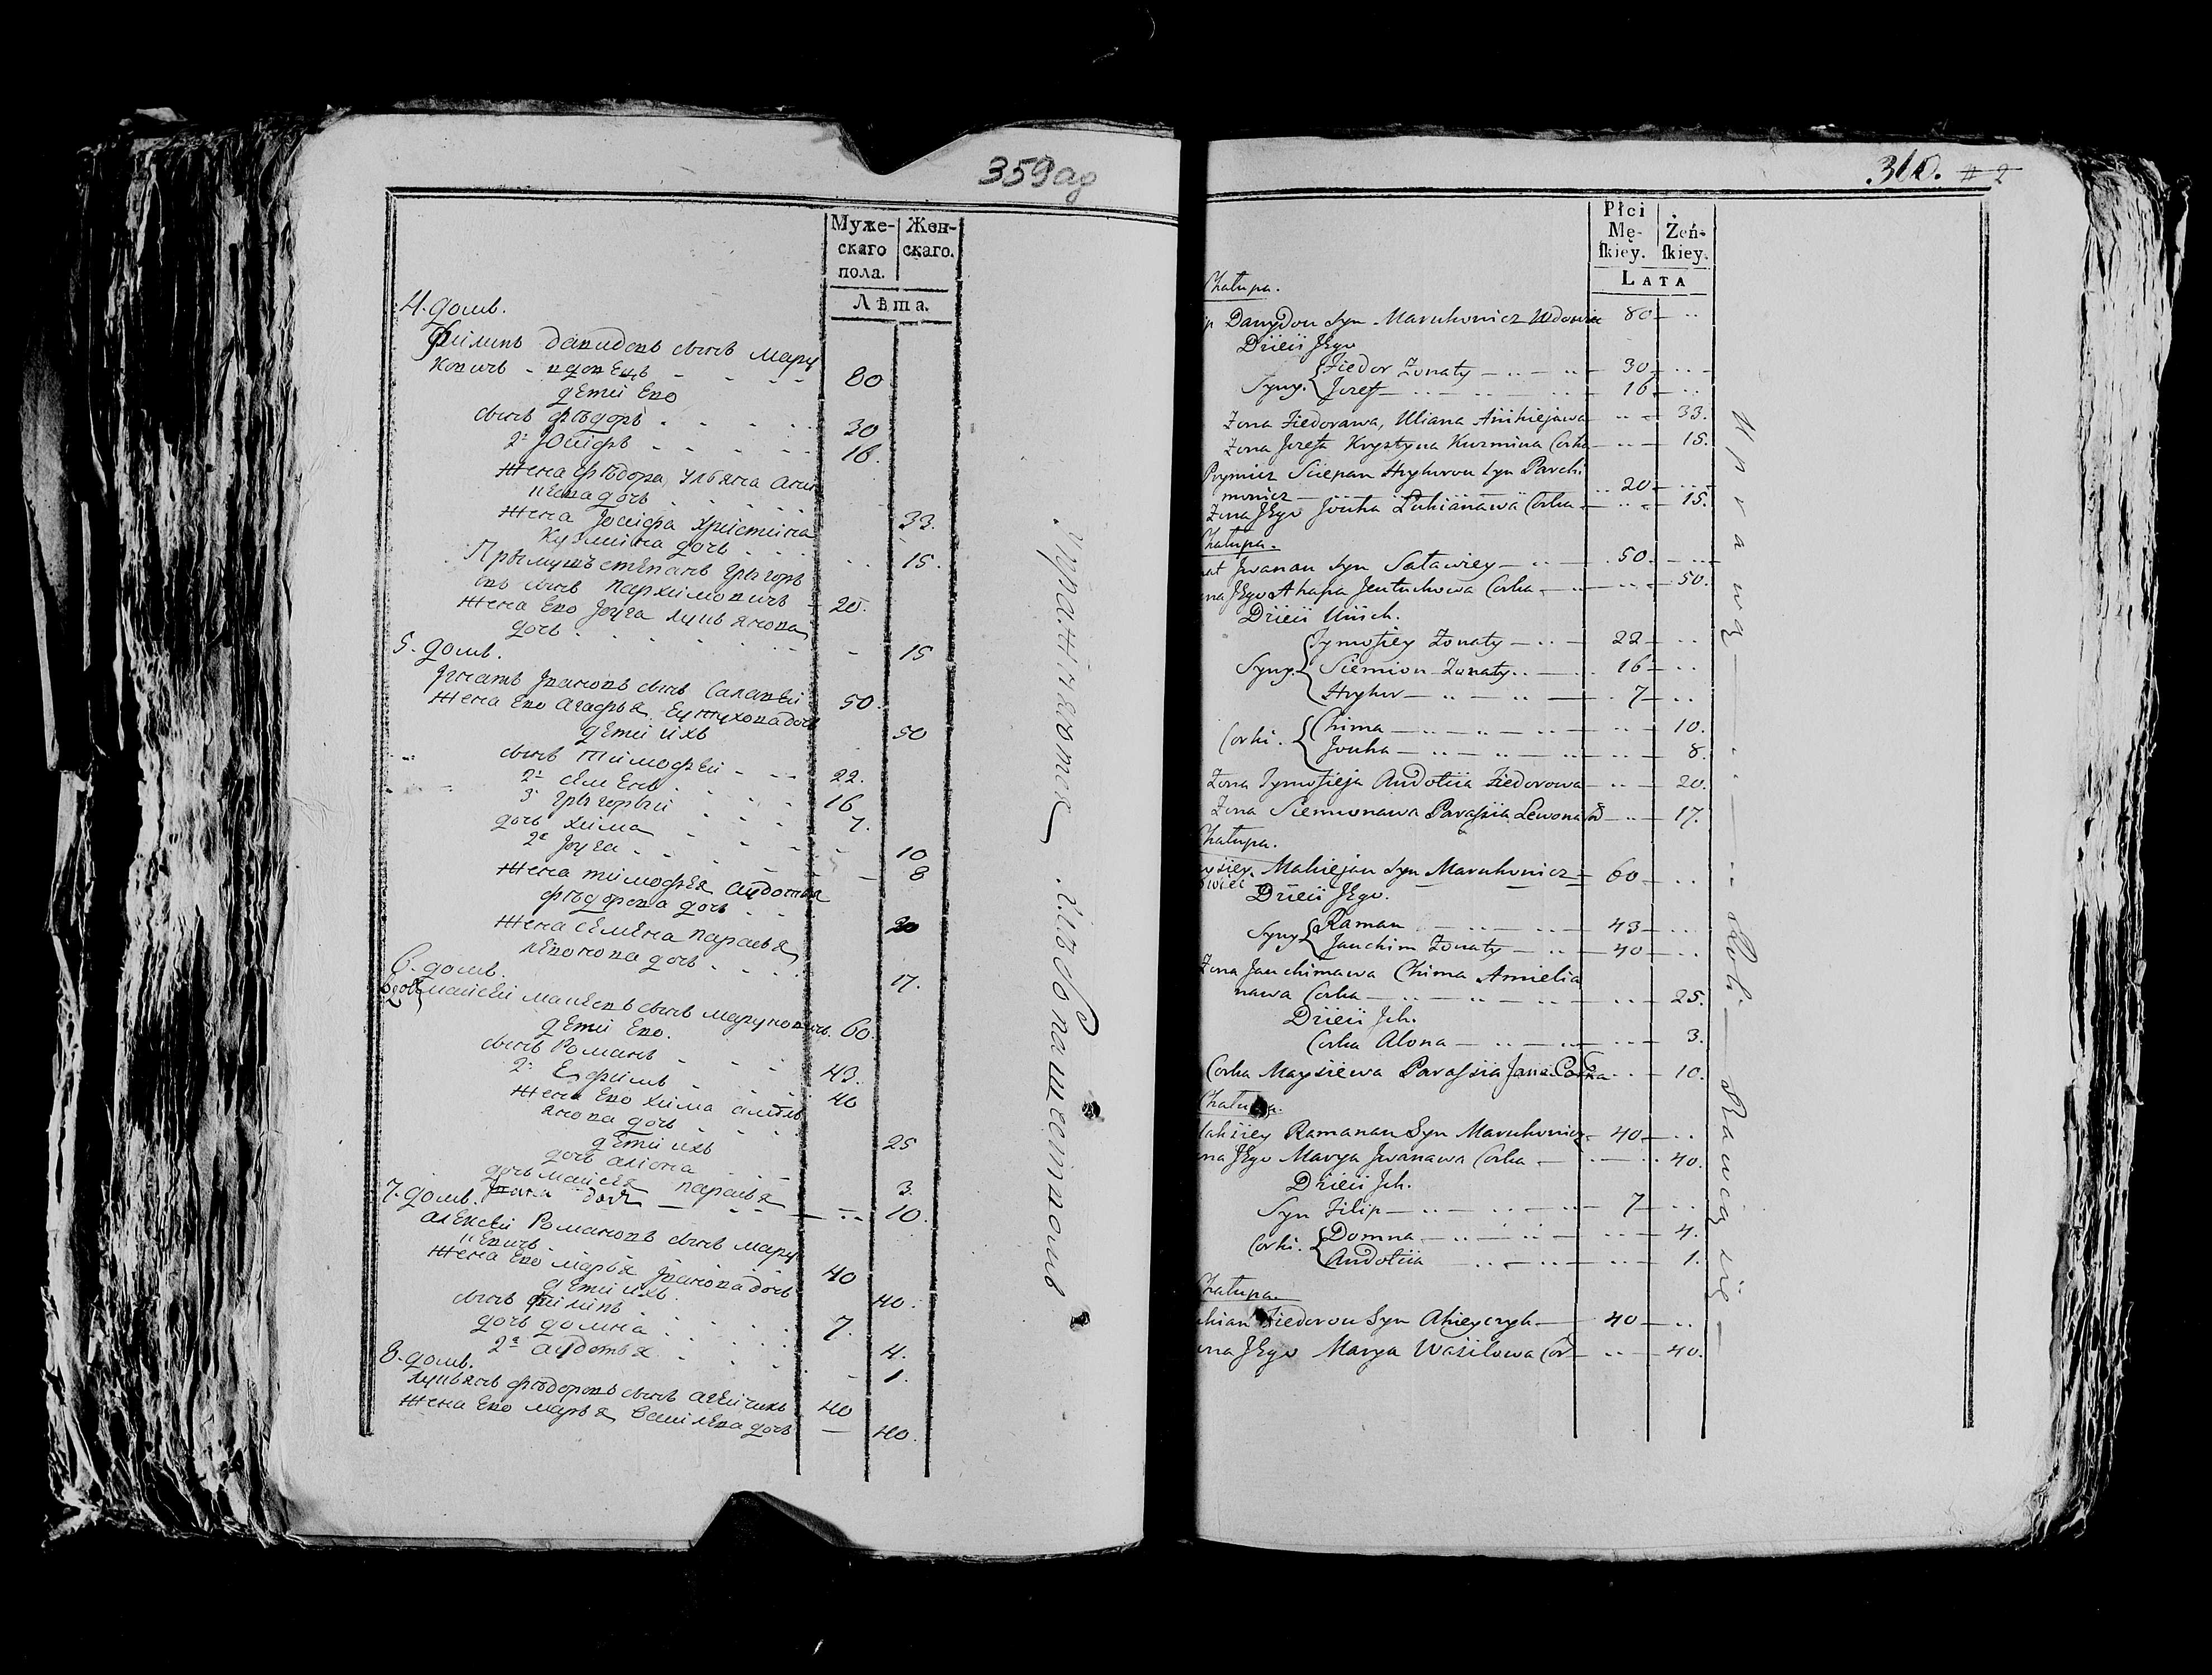 359ад
Муже-
скаго
пола.
Жен-
скаго.
Лѣта.
4. домъ.
Филипъ Давидовъ сынъ Мару
ковичъ - вдовецъ - - - - 80
дети Его
сынъ Фѣдоръ . . . . 30
2й Юсифъ - - - - 16.
Жена Фѣдора Ульяна Ани
кеева дочь . . . . 33.
Жена Іосифа Христина
Кузмина дочь . . . . 15.
Прымичъ Степанъ Грыгорь
евъ сынъ Пархимовичъ - 20.
Жена Его Јоуга Лукьянова
дочь . . . . . - 15
5. домъ.
Јгнатъ Јвановъ сынъ Салавей 50.
Жена Его Агафья Еутухова дочь 50
дети ихъ
сынъ Тимофей - - - 22.
2й Семенъ . . . . 16
3й Грыгорый . . . . 7.
дочь Хима . . . . - 10
2я Јоуга . . . . - 8
Жена Тимофея Аудотья
Фѣдорова дочь . . 20
Жена Семена Парасья
Левонова дочь . . . 17.
6. домъ.
вдов Майсей Макеевъ сынъ Маруковичъ. 60.
дети Его.
сынъ Романъ - - - 43.
2й Ефимъ . . . . 40
Жена Его Хима Амель
янова дочь . . . . 25
дети ихъ
дочь Алiона . . . 3.
дочь Майсея Парасья
дочь - - - - 10.
7. домъ.
Алексей Романовъ сынъ Мару
кевичъ . 40
Жена Его Марья Јванова дочь 40.
дети ихъ.
сынъ Филипъ . . . . 7.
дочь Домна . . . . 4.
2я Аудотья . . . . - 1.
8. домъ.
Лукьянъ Фѣдоровъ сынъ Агейчикъ 40
Жена Его Марья Василева дочь — 40.
360. # 2
Płci
Mę-
ſkiey.
Żeń-
ſkiey.
LATA
Chałupa.
Dawydou Syn Marukowicz Wdowiec 80 — ..
Dzieci Jego
Syny. { Fiedor Żonaty — .. — .. — 30 — ..
Jozef — .. — .. — 16 — ..
Zona Fiedorawa, Uliana Anikiejawa — .. — 33.
Zona Jozefa Krystyna Kuzmina Corka — .. — 15.
Prymicz Sciepan Hryhorou Syn Parchi
mowicz — .. 20 — ..
Zona Jego Jouha Łukianawa Corka — .. — 15.
Chałupa.
Jwanau Syn Saławiey — .. — 50. — ..
Jego Ahapa Jeutuchowa Corka — .. — 50.
Dzieci Uiich.
Syny. { Tymofiey Żonaty — .. — 22 — ..
Siemion Żonaty .. — 16 — ..
Hryhor — .. — .. — 7 — ..
Corki. { Chima — .. — .. — 10.
Jouha — .. — .. — 8.
Zona Tymofieja Audotiia Fiedorowa — .. — 20.
Zona Siemionawa Paraſia Lewona — .. — 17.
Chałupa.
Makiejau Syn Marukowicz — 60 — ..
Dzieci Jego.
Syny { Raman — .. — 43 — ..
Jauchim Żonaty — .. — 40 — ..
Zona Jauchimawa Chima Amielia
nawa Corka — .. — 25.
Dzieci Jch.
Corka Alona — .. — 3.
Corka Maysiewa Paraſsia — 10.
Chałupa.
Ramanau Syn Marukowicz — 40 — ..
Jego Marya Jwanawa Corka — .. — 40.
Dzieci Jch.
Syn Filip — .. — 7 — ..
Corki. { Domna — .. — 4.
Audotiia — .. — 1.
Chałupa.
Fiedorou Syn Ahieyczyk — 40 — ..
Jego Marya Wasilowa Cor — .. — 40.